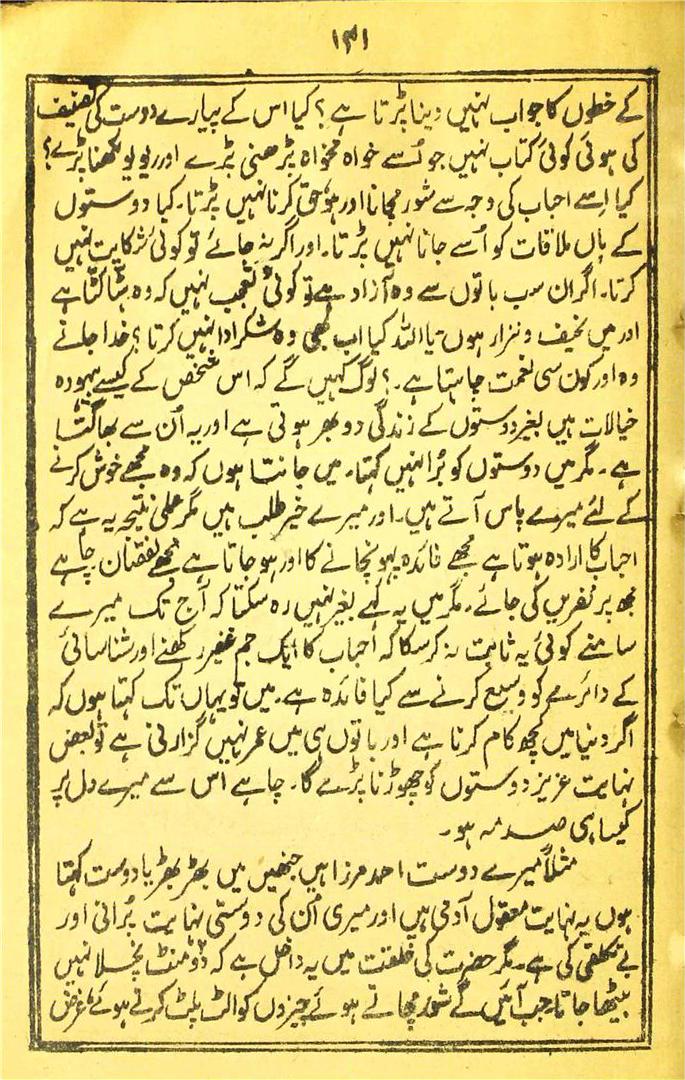 ۱۳۱
کے خطوں کا جواب نہیں دینا پڑتا ہے؟ کیا اس کے پیارے دوست کی تصنیف
کی ہوئی کوئی کتاب نہیں جو اُسے خواہ مخواہ پڑھنی پڑے اور ریویو لکھنا پڑے؟
کیا اِسے احباب کی وجہ سے شور مچانا اور ہو حق کرنا نہیں پڑتا۔ کیا دوستوں
کے ہاں ملاقات کو اُسے جانا نہیں پڑتا۔ اور اگر نہ جائے تو کوئی شکایت نہیں
کرتا۔ اگر ان سب باتوں سے وہ آزاد ہے تو کوئی تعجب نہیں کہ وہ ہٹا کٹا ہے
اور میں نحیف و نزار ہوں۔ یا اللہ کیا اب بھی وہ شکر ادا نہیں کرتا؟ خدا جانے
وہ اور کون سی نعمت چاہتا ہے۔؟ لوگ کہیں گے کہ اس شخص کے کیسے بیہودہ
خیالات ہیں بغیر دوستوں کے زندگی دوبھر ہوتی ہے اور یہ اُن سے بھاگتا
ہے۔ مگر میں دوستوں کو بُرا نہیں کہتا۔ میں جانتا ہوں کہ وہ مجھے خوش کرنے
کے لئے میرے پاس آتے ہیں۔ اور میرے خیر طلب ہیں مگر عملی نتیجہ یہ ہے کہ
احباب کا ارادہ ہوتا ہے مجھے فائدہ پہونچانے کا اور ہو جاتا ہے مجھے نقصان چاہے
مجھ پر نفریں کی جائے۔ مگر میں یہ کہے بغیر نہیں رہ سکتا کہ آج تک میرے
سامنے کوئی یہ ثابت نہ کر سکا کہ احباب کا ایک جم غفیر رکھنے اور شناسائی
کے دائرے کو وسیع کرنے سے کیا فائدہ ہے۔ میں تو یہاں تک کہتا ہوں کہ
اگر دنیا میں کچھ کام کرنا ہے اور باتوں ہی میں عمر نہیں گزارنی ہے تو بعض
نہایت عزیز دوستوں کو چھوڑنا پڑے گا۔ چاہے اس سے میرے دل پر
کیسا ہی صدمہ ہو۔
مثلاً میرے دوست احمد مرزا ہیں جنھیں میں بھڑبھڑیا دوست کہتا
ہوں یہ نہایت معقول آدمی ہیں اور میری اُن کی دوستی نہایت پُرانی اور
بے تکلفی کی ہے۔ مگر حضرت کی خلقت میں یہ داخل ہے کہ دو منٹ نچلا نہیں
بیٹھا جاتا۔ جب آئیں گے شور مچاتے ہوئے چیزوں کو الٹ پلٹ کرتے ہوئے، غرض